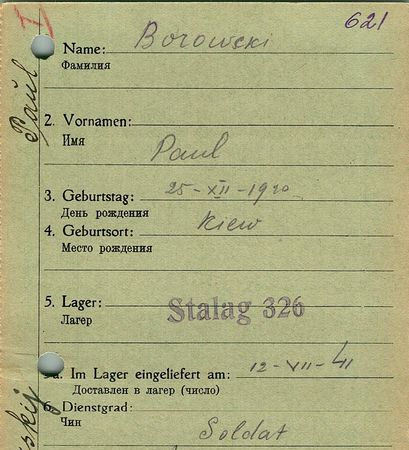 621
7
Name: Borowski
Фамилия
2. Vornamen:
Имя
Paul
3. Geburtstag: 25-XII-1920
День рождения
4. Geburtsort: Kiew
Место рождения
5. Lager: Stalag 326
Лагерь
a. Im Lager eingeliefert am: 12-VII-41
Доставлен в лагер (число)
6. Dienstgrad:
Чин
Soldat
Paul